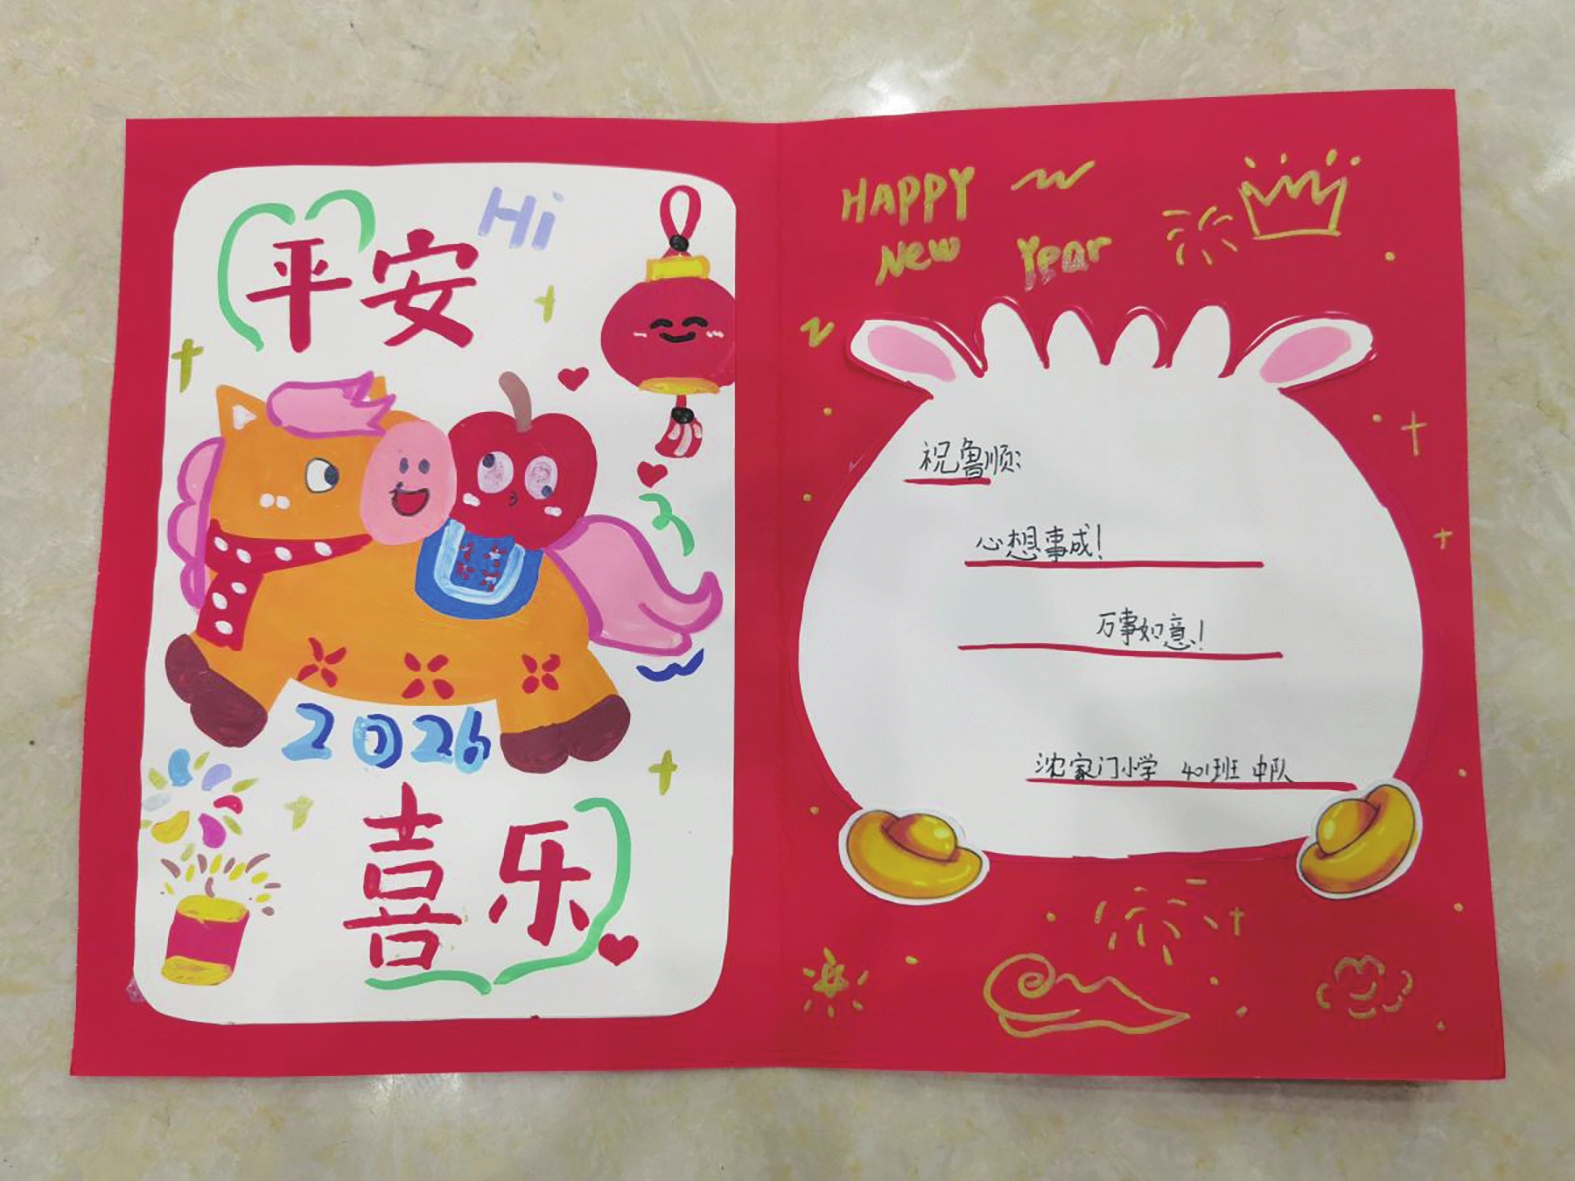 平安
Hi
2026
喜乐
HAPPY
New Year
祝鲁顺:
心想事成!
万事如意!
沈家门小学 401班 中队